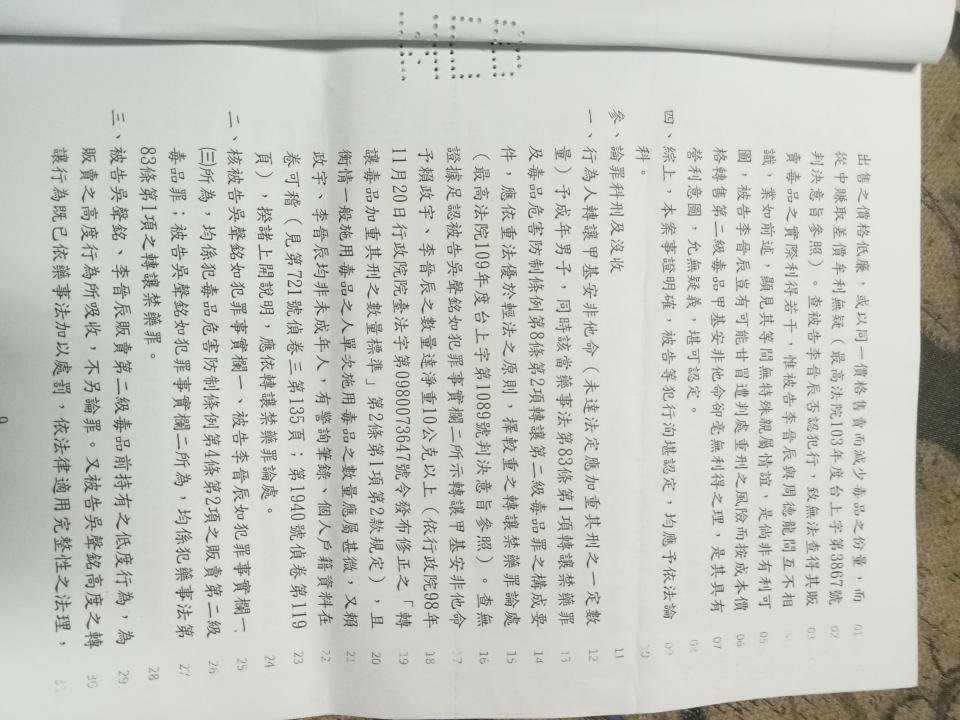 出售之價格低廉，或以同一價格售賣而減少毒品之份量，而 01
從中賺取差價牟利無疑（最高法院103年度台上字第3867號 02
判決意旨參照）。查被告李晉辰否認犯行，致無法查得其販 03
賣毒品之實際利得若干，惟被告李晉辰與周德龍間互不相 04
識，業如前述，顯見其等間無特殊親屬情誼，是倘非有利可 05
圖，被告李晉辰豈有可能甘冒遭判處重刑之風險而按成本價 06
格轉售第二級毒品甲基安非他命卻毫無利得之理，是其具有 07
營利意圖，允無疑義，堪可認定。 08
四、綜上，本案事證明確，被告等犯行洵堪認定，均應予依法論 09
科。 10
參、論罪科刑及沒收 11
一、行為人轉讓甲基安非他命（未達法定應加重其刑之一定數 12
量）予成年男子，同時該當藥事法第83條第1項轉讓禁藥罪 13
及毒品危害防制條例第8條第2項轉讓第二級毒品罪之構成要 14
件，應依重法優於輕法之原則，擇較重之轉讓禁藥罪論處 15
（最高法院109年度台上字第1089號判決意旨參照）。查無 16
證據足認被告吳聲銘如犯罪事實欄二所示轉讓甲基安非他命 17
予賴政宇、李晉辰之數量達淨重10公克以上（依行政院98年 18
11月20日行政院院臺法字第0980073647號令發布修正之「轉 19
讓毒品加重其刑之數量標準」第2條第1項第2款規定），且 20
衡情一般施用毒品之人單次施用毒品之數量應屬甚微，又賴 21
政宇、李晉辰均非未成年人，有警詢筆錄、個人戶籍資料在 22
卷可稽（見第721號偵卷三第135頁；第1940號偵卷第119 23
頁）揆諸上開說明，應依轉讓禁藥罪論處。 24
二、核被告吳聲銘如犯罪事實欄一、被告李晉辰如犯罪事實欄一、 25
㈢所為，均係犯毒品危害防制條例第4條第2項之販賣第二級 26
毒品罪；被告吳聲銘如犯罪事實欄二所為，均係犯藥事法第 27
83條第1項之轉讓禁藥罪。 28
三、被告吳聲銘、李晉辰販賣第二級毒品前持有之低度行為，為 29
販賣之高度行為所吸收，不另論罪。又被告吳聲銘高度之轉 30
讓行為既已依藥事法加以處罰，依法律適用完整性之法理， 31
9